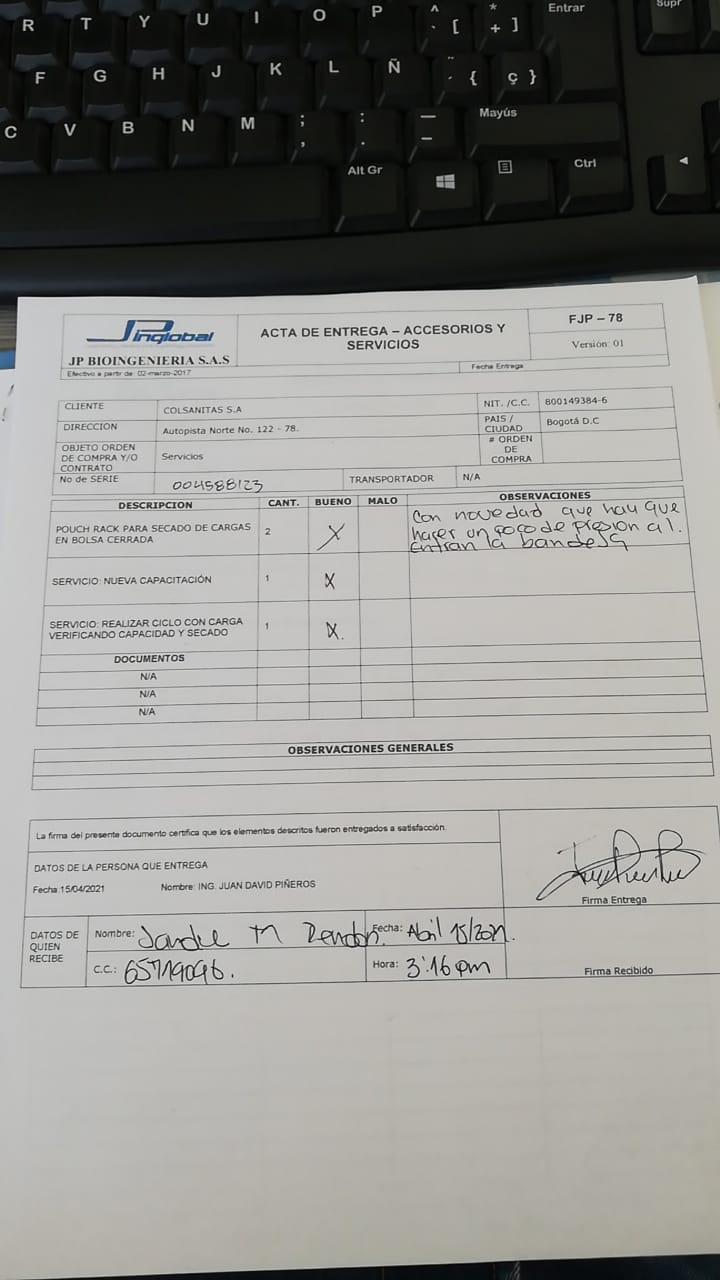 R T Y U I O P ^ ` [ * + ] Entrar Supr
F G H J K L Ñ ¨ ´ { ç }
C V B N M ; , : . — – Mayús
Alt Gr Ctrl
JP inglobal
JP BIOINGENIERIA S.A.S
ACTA DE ENTREGA – ACCESORIOS Y
SERVICIOS
FJP – 78
Versión: 01
Efectivo a partir de: 02-marzo-2017
Fecha Entrega
CLIENTE COLSANITAS S.A NIT. /C.C. 800149384-6
DIRECCION Autopista Norte No. 122 - 78. PAIS / CIUDAD Bogotá D.C
OBJETO ORDEN DE COMPRA Y/O CONTRATO Servicios # ORDEN DE COMPRA
No de SERIE 004588123 TRANSPORTADOR N/A
DESCRIPCION CANT. BUENO MALO OBSERVACIONES
POUCH RACK PARA SECADO DE CARGAS EN BOLSA CERRADA 2 X
Con novedad que hay que
hacer un poco de presion al
entran la
SERVICIO: NUEVA CAPACITACIÓN 1 X
SERVICIO: REALIZAR CICLO CON CARGA VERIFICANDO CAPACIDAD Y SECADO 1 X.
DOCUMENTOS
N/A
N/A
N/A
OBSERVACIONES GENERALES
La firma del presente documento certifica que los elementos descritos fueron entregados a satisfacción.
DATOS DE LA PERSONA QUE ENTREGA
Fecha:15/04/2021 Nombre: ING. JUAN DAVID PIÑEROS
Firma Entrega
DATOS DE QUIEN RECIBE
Nombre: M Rendón Fecha: Abril 15/2021.
C.C.: 65719096. Hora: 3:16 pm
Firma Recibido